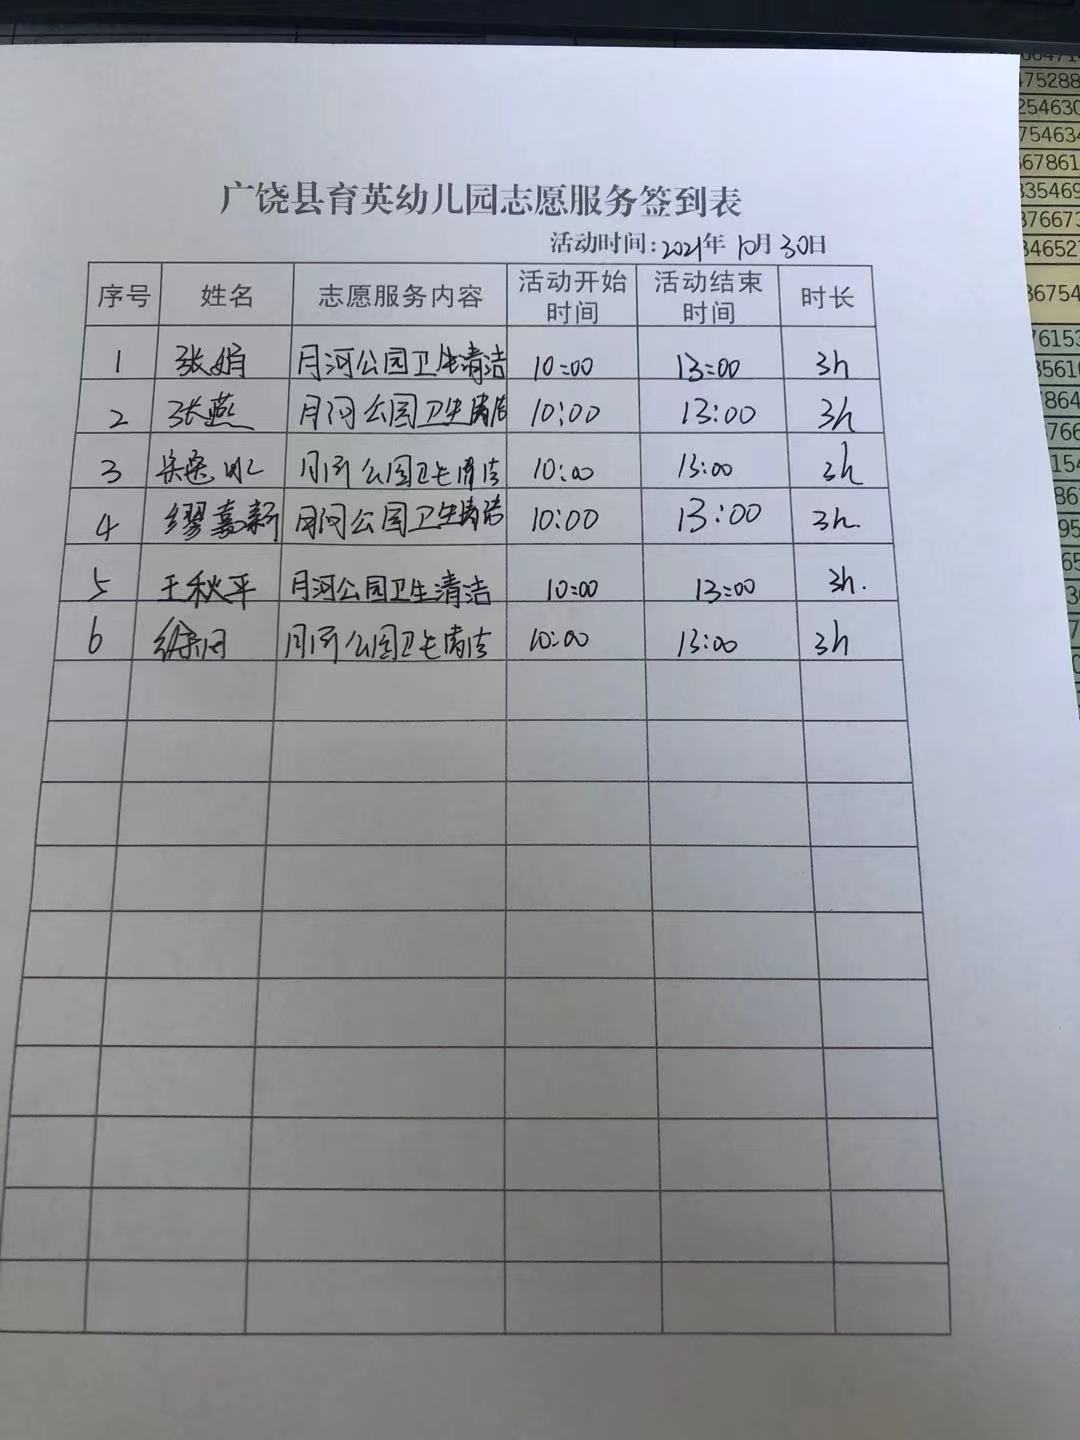 广饶县育英幼儿园志愿服务签到表
活动时间:2021年10月30日
序号 姓名 志愿服务内容 活动开始时间 活动结束时间 时长
1 张娟 月河公园卫生清洁 10:00 13:00 3h
2 张燕 月河公园卫生清洁 10:00 13:00 3h
3 月河公园卫生清洁 10:00 13:00 3h
4 缪嘉新 月河公园卫生清洁 10:00 13:00 3h.
5 王秋平 月河公园卫生清洁 10:00 13:00 3h.
6 月河公园卫生清洁 10:00 13:00 3h